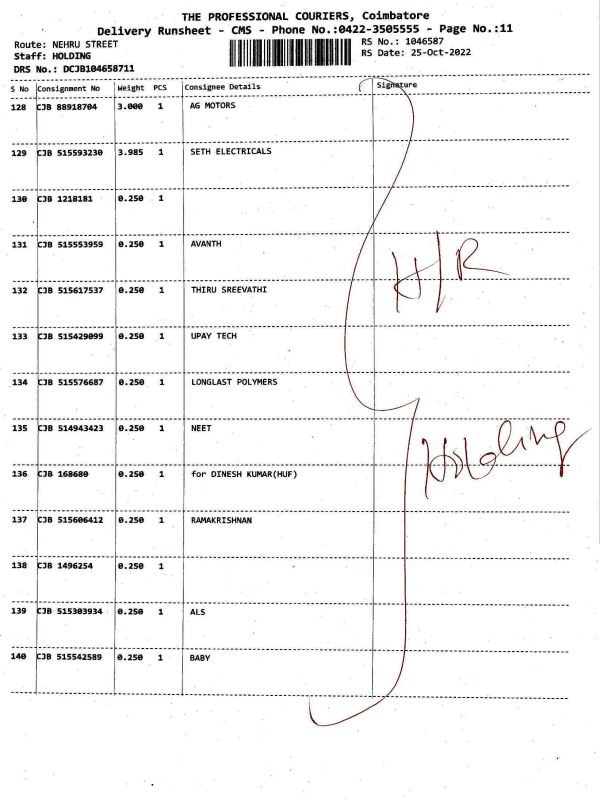 THE PROFESSIONAL COURIERS, Coimbatore
Delivery Runsheet - CMS - Phone No.:0422-3505555 - Page No.:11
Route: NEHRU STREET
Staff: HOLDING
DRS No.: DCJB104658711
RS No.: 1046587
RS Date: 25-Oct-2022
S No Consignment No Weight PCS Consignee Details Signature
128 CJB 88918704 3.000 1 AG MOTORS
129 CJB 515593230 3.985 1 SETH ELECTRICALS
130 CJB 1218181 0.250 1
131 CJB 515553959 0.250 1 AVANTH
H/R
132 CJB 515617537 0.250 1 THIRU SREEVATHI
133 CJB 515429099 0.250 1 UPAY TECH
134 CJB 515576687 0.250 1 LONGLAST POLYMERS
135 CJB 514943423 0.250 1 NEET
Holding
136 CJB 168680 0.250 1 for DINESH KUMAR(HUF)
137 CJB 515606412 0.250 1 RAMAKRISHNAN
138 CJB 1496254 0.250 1
139 CJB 515303934 0.250 1 ALS
140 CJB 515542589 0.250 1 BABY